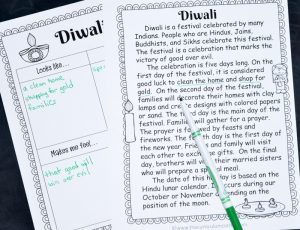 Diwali
Looks like...
a clean home,
shopping for gold
families
Makes me feel...
that good will
win over evil
Diwali
Diwali is a festival celebrated by many
Indians. People who are Hindus, Jains,
Buddhists, and Sikhs celebrate this festival.
The festival is a celebration that marks the
victory of good over evil.
The celebration is five days long. On the
first day of the festival, it is considered
good luck to clean the home and shop for
gold. On the second day of the festival,
families will decorate their homes with clay
lamps and create designs with colored papers
or sand. The third day is the main day of the
festival. Families will gather for a prayer.
The prayer is followed by feasts and
fireworks. The fourth day is the first day of
the new year. Friends and family will visit
each other to exchange gifts. On the final
day, brothers will visit their married sisters
who will prepare a special meal.
The date of this holiday is based on the
Hindu lunar calendar. It occurs during our
October or November depending on the
position of the moon.